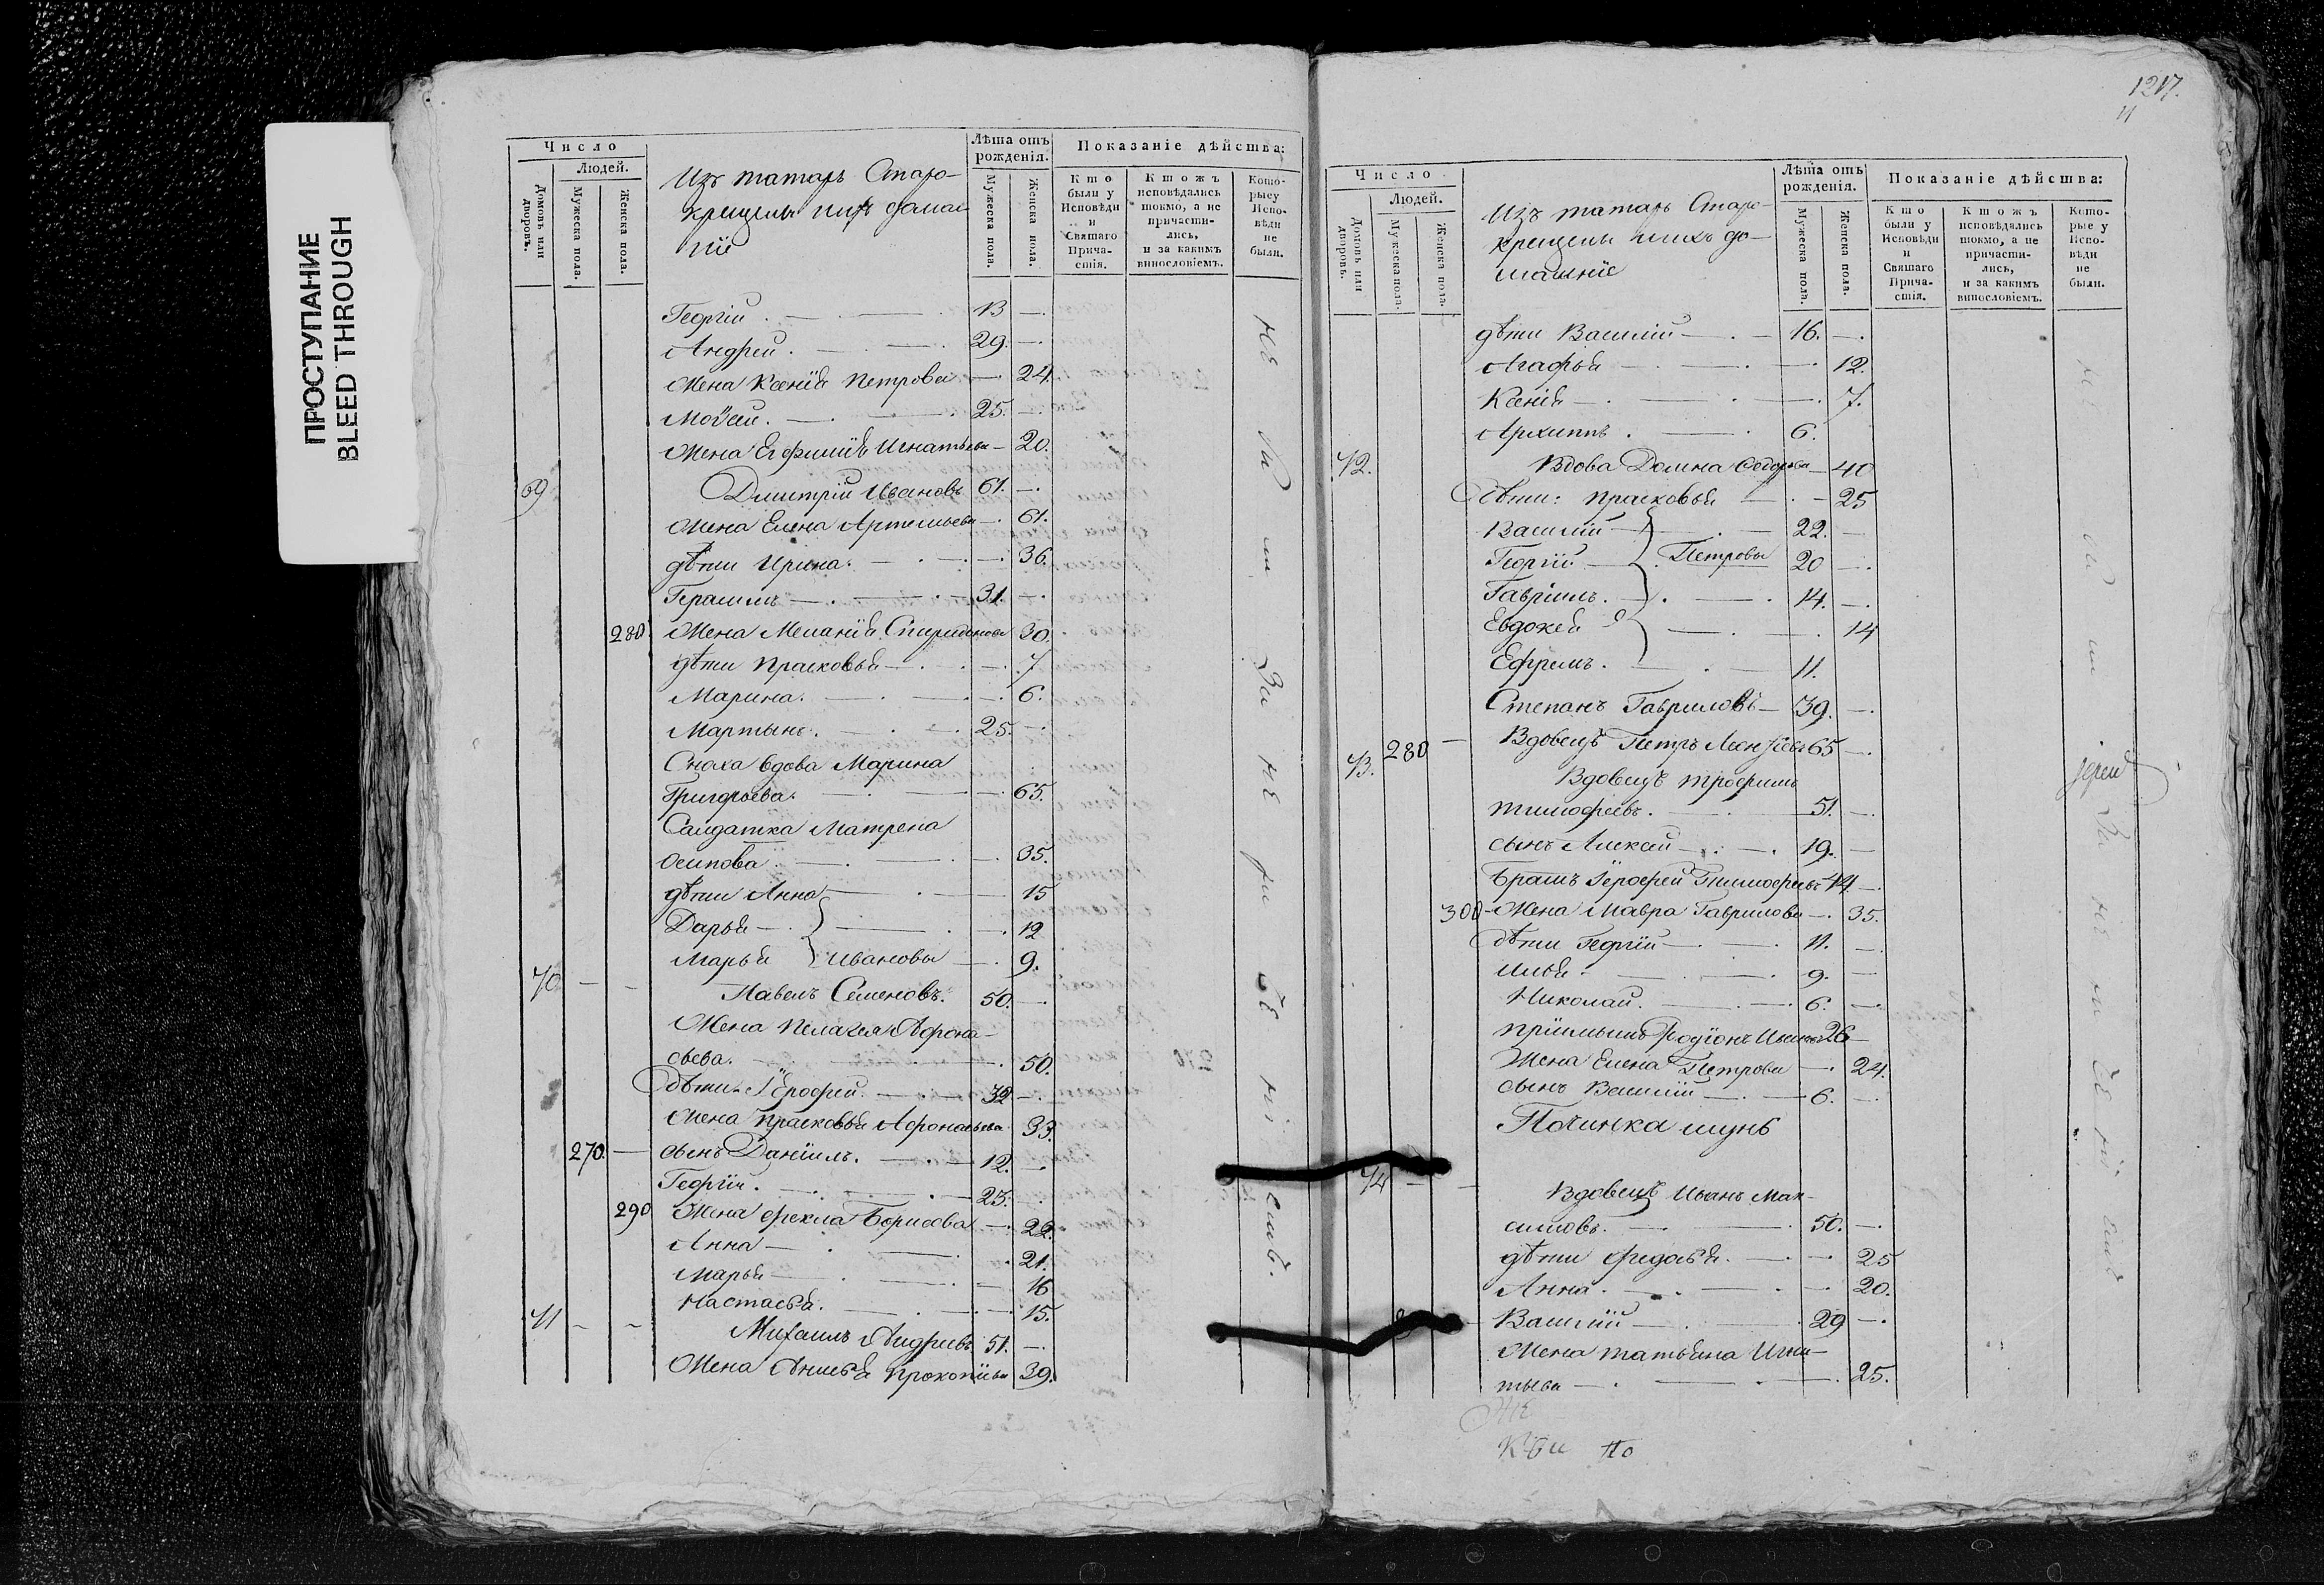 ПРОСТУПАНИЕ
BLEED THROUGH
Число
Людей.
Домовъ или дворовъ.
Мужеска пола.
Женска пола.
Изъ татаръ Старо-
крещены
нїе
Лѣта отъ рожденія.
Мужеска пола.
Женска пола.
Показаніе дѣйства:
Кто были у Исповѣди и Святаго Прича-стія.
Ктожъ исповѣдались токмо, а не причасти-лись, и за какимъ винословіемъ.
Кото-рые у Испо-вѣди не были.
Георгій 13
Андрей 29.
Жена Ксенія Петрова 24.
Моѵсей 25.
Жена Игнатьева 20.
69 Дмитрій Ивановъ 61.
Жена Елена Артемьева 61.
дѣти Ирина 36.
Герасимъ 31.
280 Жена Меланія Спиридонова 30.
дѣти Прасковья 7
Марина 6.
Мартынъ 25.
Сноха вдова Марина
Григорьева 65.
Салдатка Матрена
Осипова 35.
дѣти Анна 15
Дарья 12
Марья Ивановы 9.
70 Павелъ Семеновъ 50.
Жена Пелагея Афона-
сьева 50.
дѣти Ерофей 32
Жена Прасковья Афонасьева 33.
270. сынъ Даніилъ 12.
Георгій 25.
290 Жена Фекла Борисова 22.
Анна 21.
Марья 16
Настасья 15.
71 Михаилъ Андреевъ 51.
Жена Анисья Прокопїева 39.
1217.
Число
Людей.
Домовъ или дворовъ.
Мужеска пола.
Женска пола.
Изъ татаръ Старо-
крещены ихъ до-
машніе
Лѣта отъ рожденія.
Мужеска пола.
Женска пола.
Показаніе дѣйства:
Кто были у Исповѣди и Святаго Прича-стія.
Ктожъ исповѣдались токмо, а не причасти-лись, и за какимъ винословіемъ.
Кото-рые у Испо-вѣди не были.
дѣти Василій 16.
Агафья 12.
Ксенія 7.
Архиппъ 6.
72. Вдова Домна 40
дѣти: Прасковья 25
Василій 22.
Георгій Петровы 20
Гавріилъ 14.
Евдокея 14
Ефремъ 11.
Степанъ Гавриловъ 39.
280 Вдовецъ Петръ 65
73. Вдовецъ Трофимъ
Тимофеевъ 51.
сынъ Алексей 19.
братъ Ерофей Тимофеевъ 44
300 Жена Мавра Гаврилова 35.
дѣти Георгій 11.
Илья 9.
Николай 6.
пріимышъ Родіонъ 26
Жена Елена Петрова 24.
сынъ Василій 6.
Починка
74 Вдовецъ Иванъ Мак-
симовъ 50.
дѣти Федосья 25
Анна 20.
Василій 29
Жена Татьяна Игна-
тьева 25.
іерей